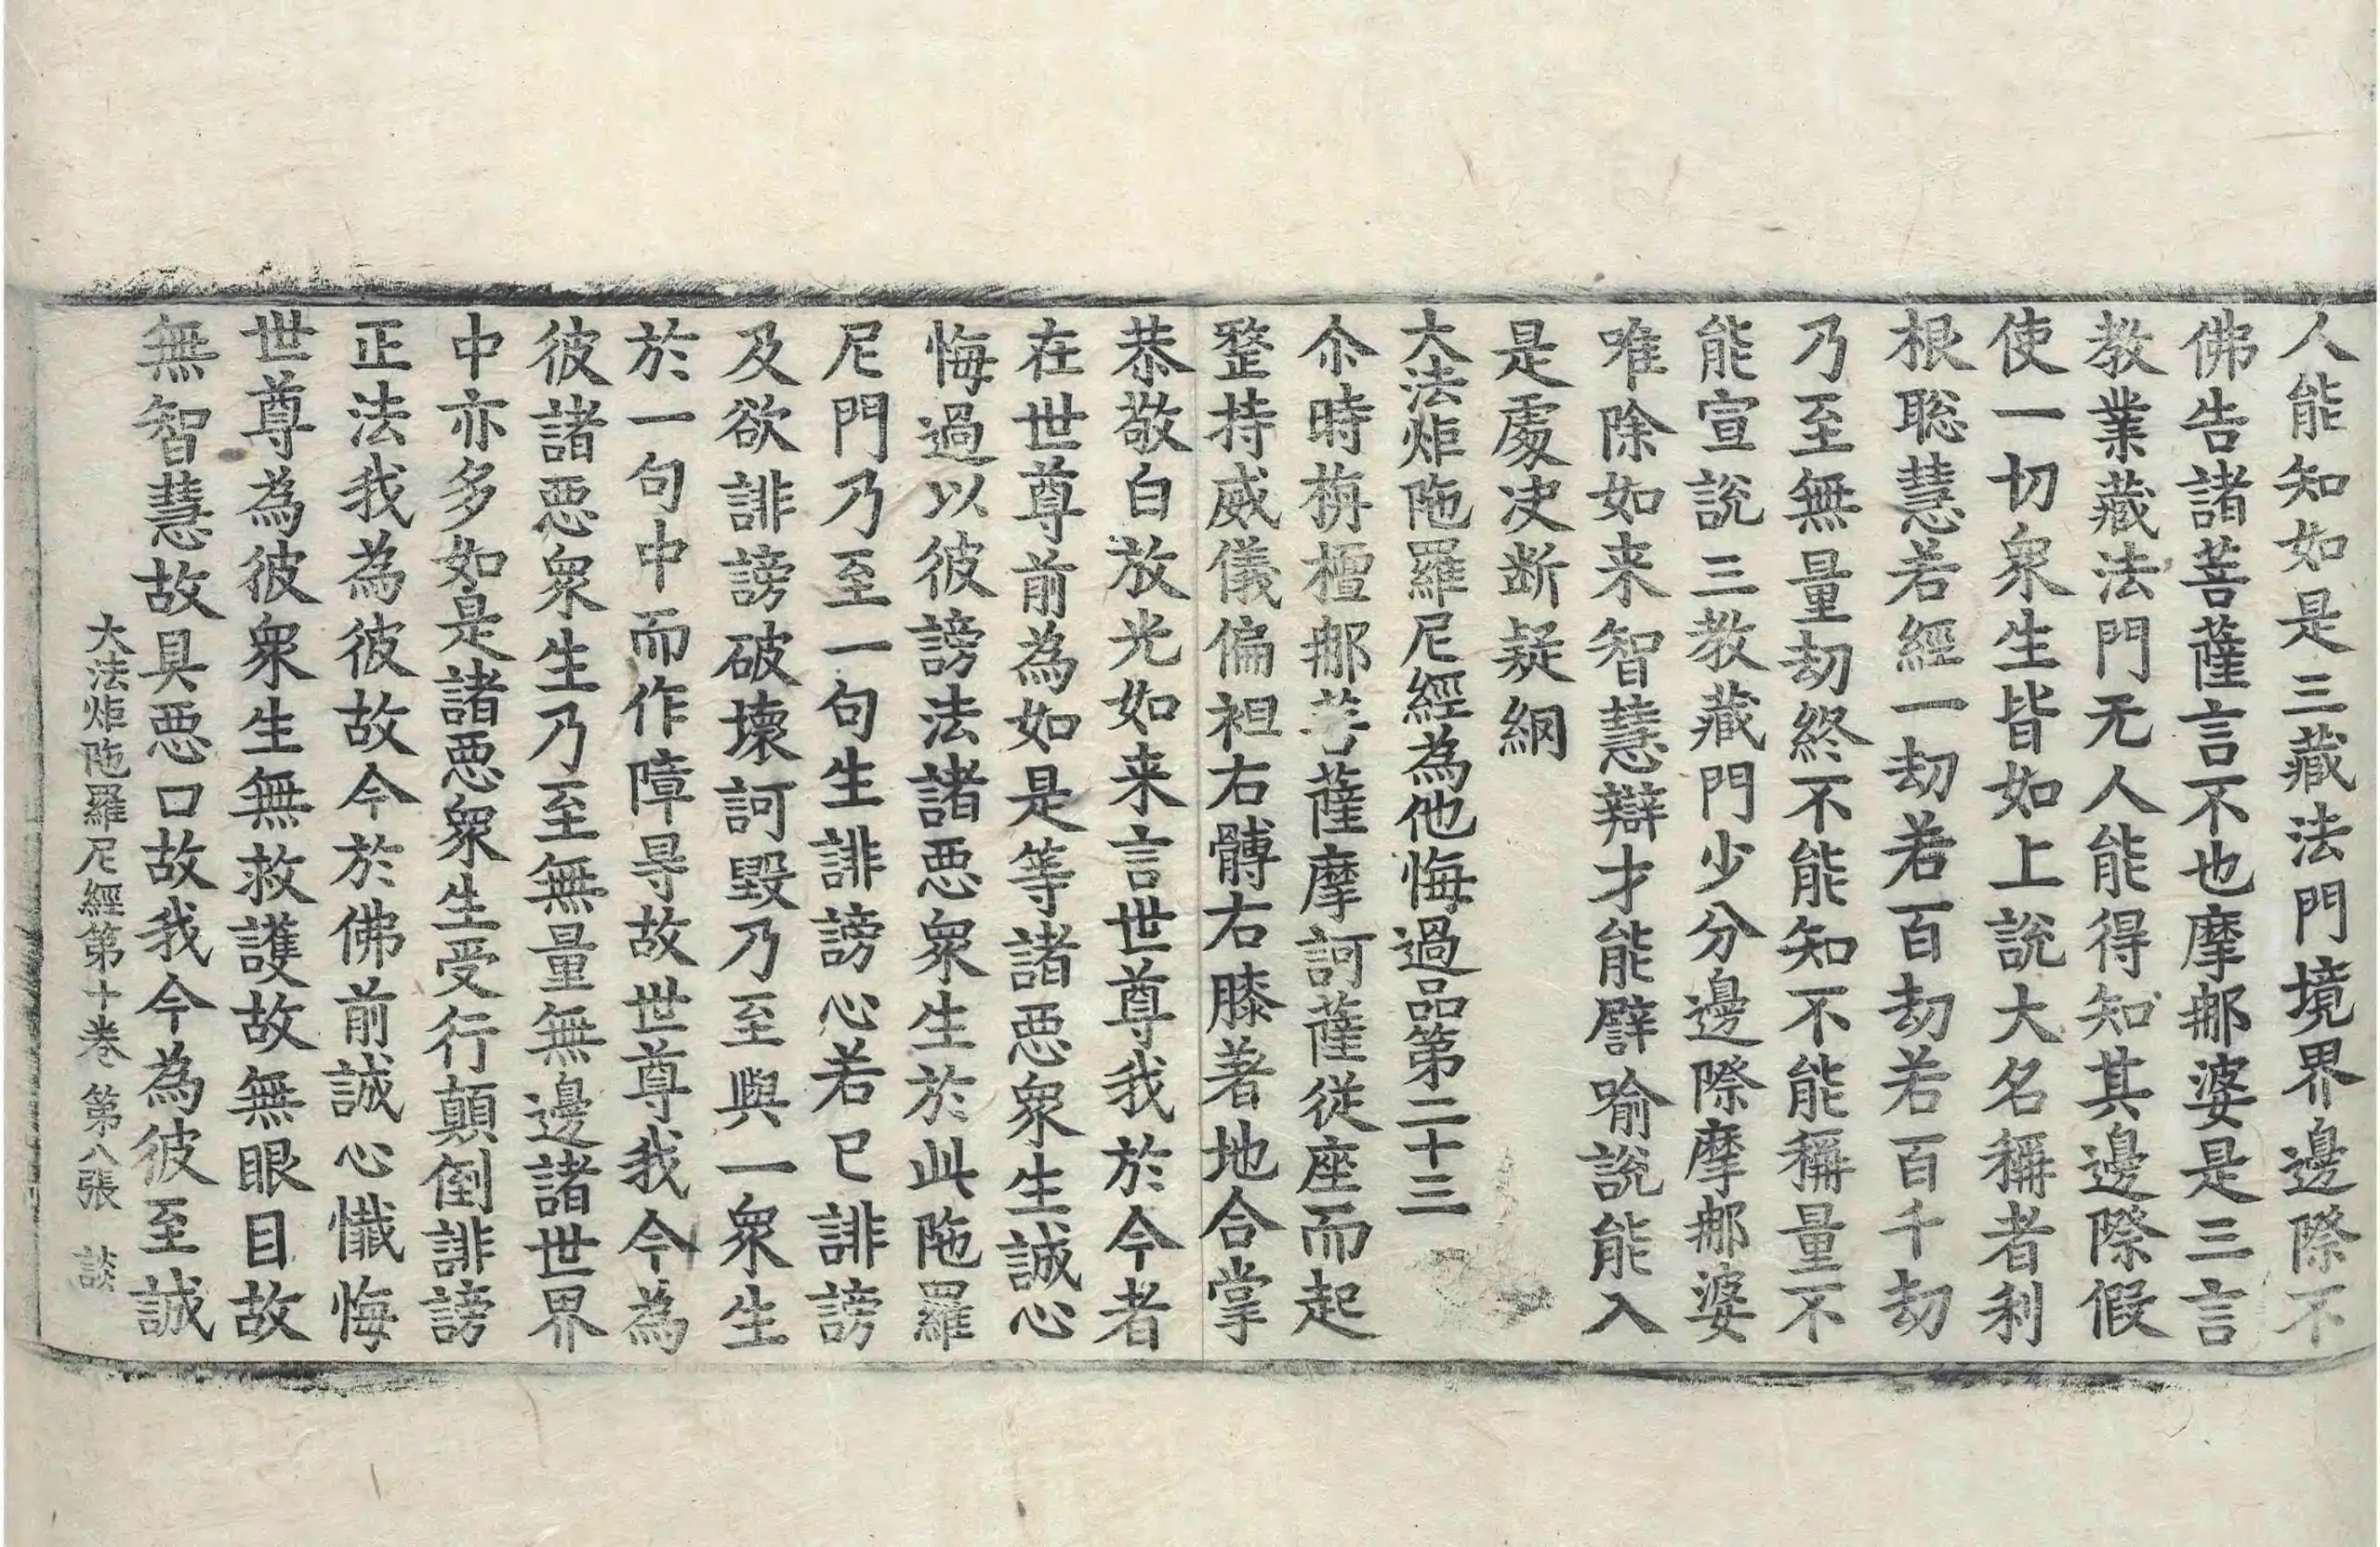 人能知如是三藏法門境界邊際不
佛告諸菩薩言不也摩䣈婆是三言
教業藏法門无人能得知其邊際假
使一切衆生皆如上說大名稱者利
根聡慧若經一劫若百劫若百千劫
乃至無量劫終不能知不能稱量不
能宣說三教藏門少分邊際摩䣈婆
唯除如来智慧辯才能譬喻說能入
是處决断疑網
大法炬陁羅尼經為他悔過品第二十三
尒時栴檀䣈菩薩摩訶薩從座而起
整持威儀偏袒右髆右膝著地合掌
恭敬白放光如来言世尊我於今者
在世尊前為如是等諸惡衆生誠心
悔過以彼謗法諸惡衆生於此陁羅
尼門乃至一句生誹謗心若已誹謗
及欲誹謗破壞訶毀乃至與一衆生
於一句中而作障㝵故世尊我今為
彼諸惡衆生乃至無量無邊諸世界
中亦多如是諸惡衆生受行顛倒誹謗
正法我為彼故今於佛前誠心懺悔
世尊為彼衆生無救護故無眼目故
無智慧故具惡口故我今為彼至誠
大法炬陁羅尼經第十卷 第八張 談